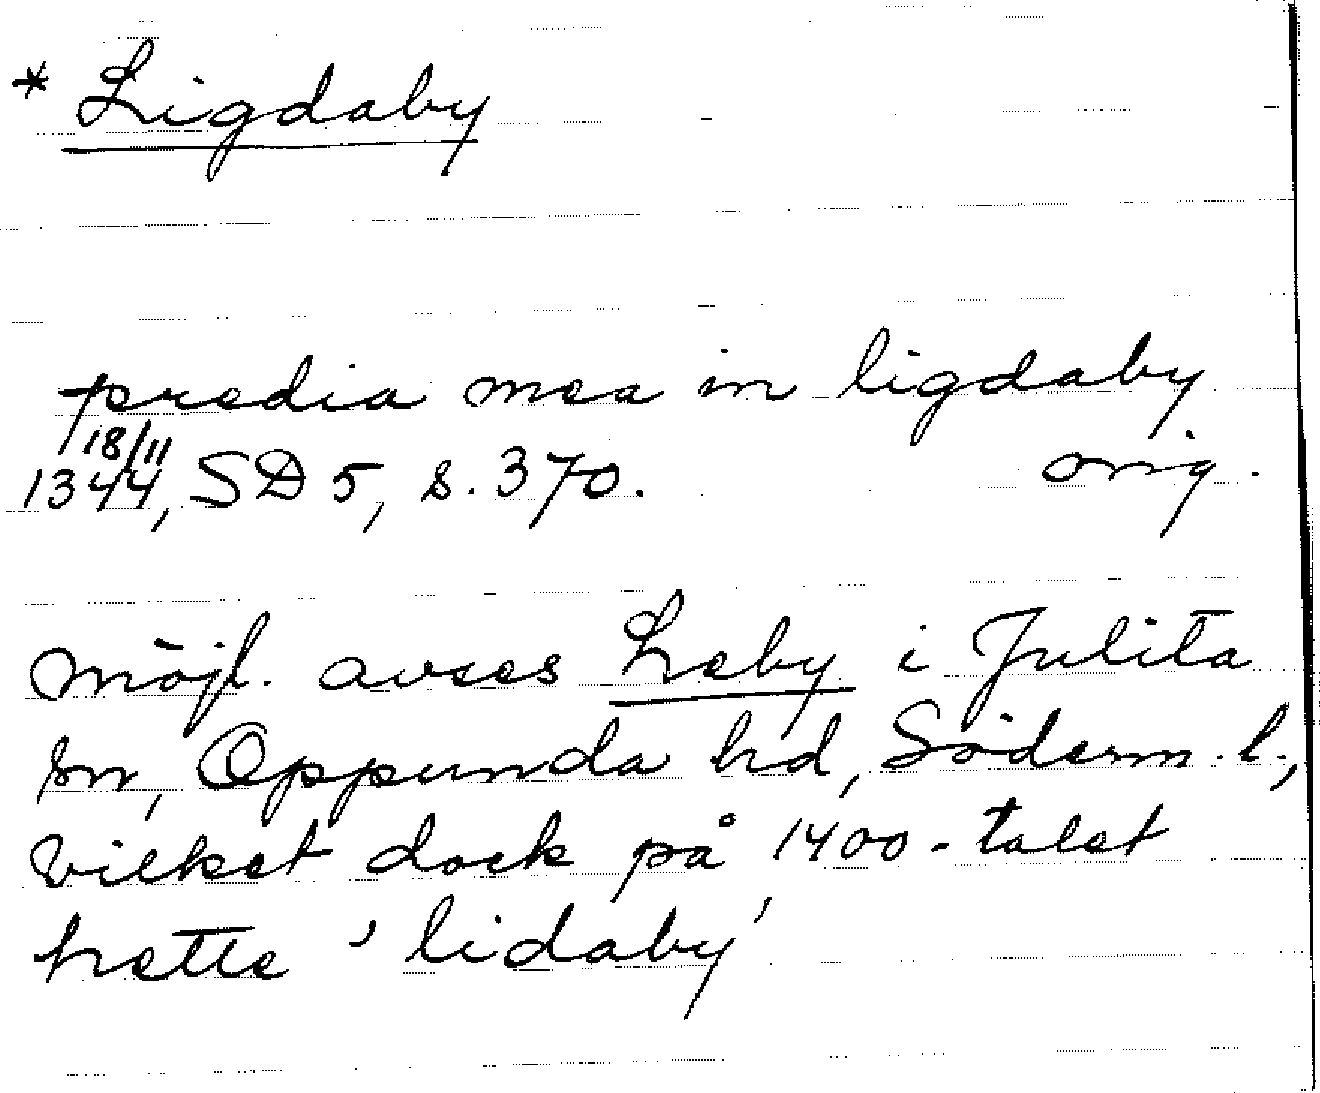 * Ligdaby
predia mea in ligdaby
18/11
1344, SD 5, s. 370. orig.
möjl. avses Leby i Julita
sn, Oppunda hd, Söderm. l.,
vilket dock på 1400-talet
hette 'lidaby'